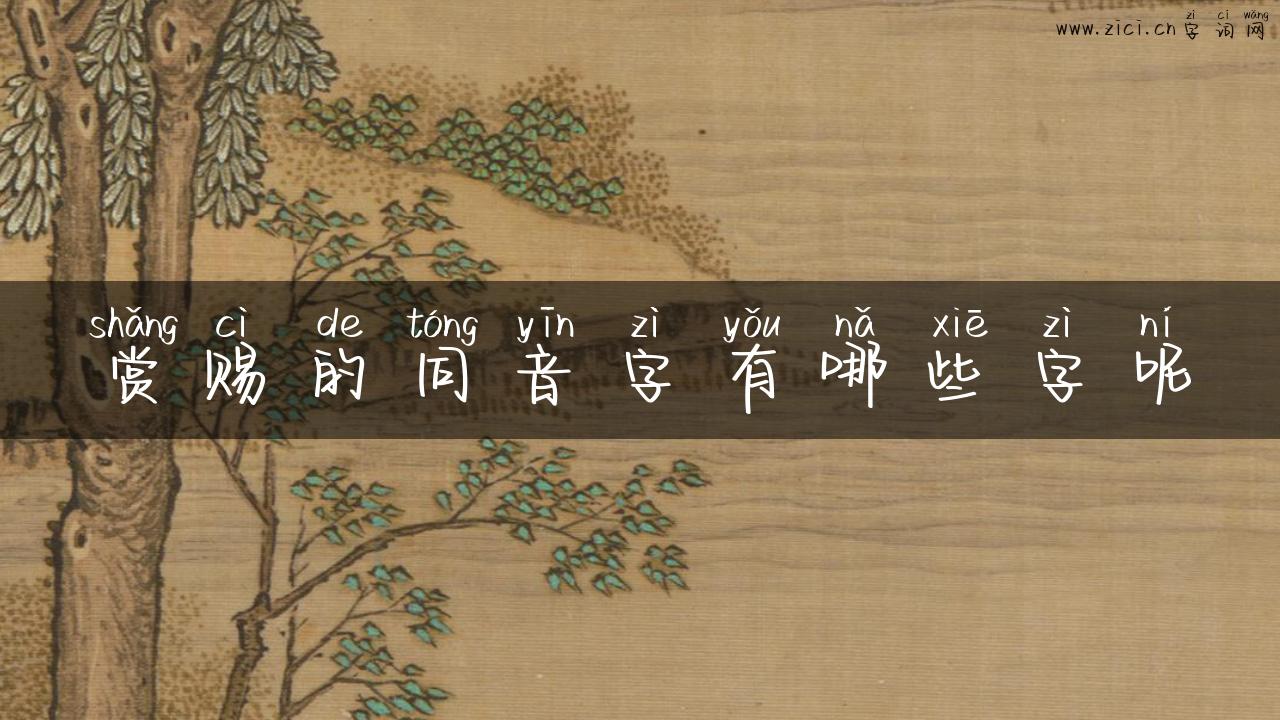 zì cí wǎng
www.zici.cn 字词网
shǎng cì de tóng yīn zì yǒu nǎ xiē zì ní
赏赐的同音字有哪些字呢